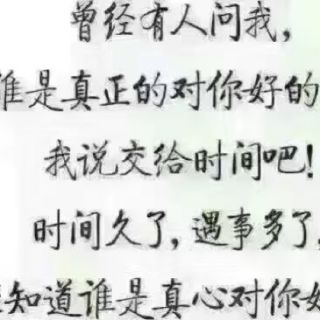 曾经有人问我,
谁是真正的对你好的
我说交给时间吧!
时间久了,遇事多了,
知道谁是真心对你好